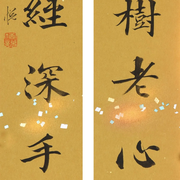 樹老心
經深手
恒